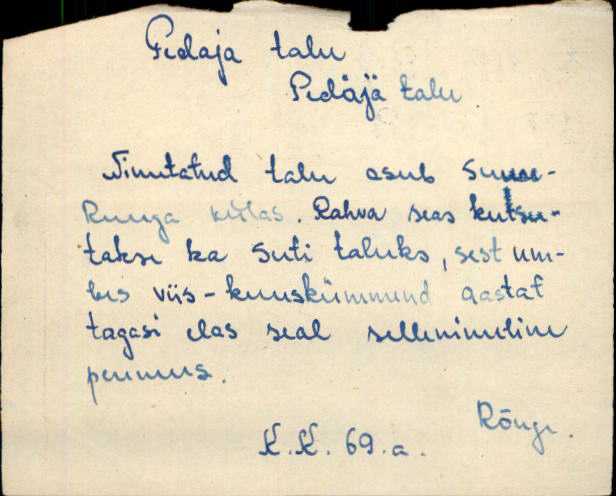 Pedaja talu
Pedäjä talu
Nimetatud talu asub Suure-
Ruuga külas. Rahva seas kutsu-
takse ka Suti taluks, sest um-
bes viis-kuuskümmend aastat
tagasi elas seal sellenimeline
peremees.
Rõuge.
K.K. 69.a.